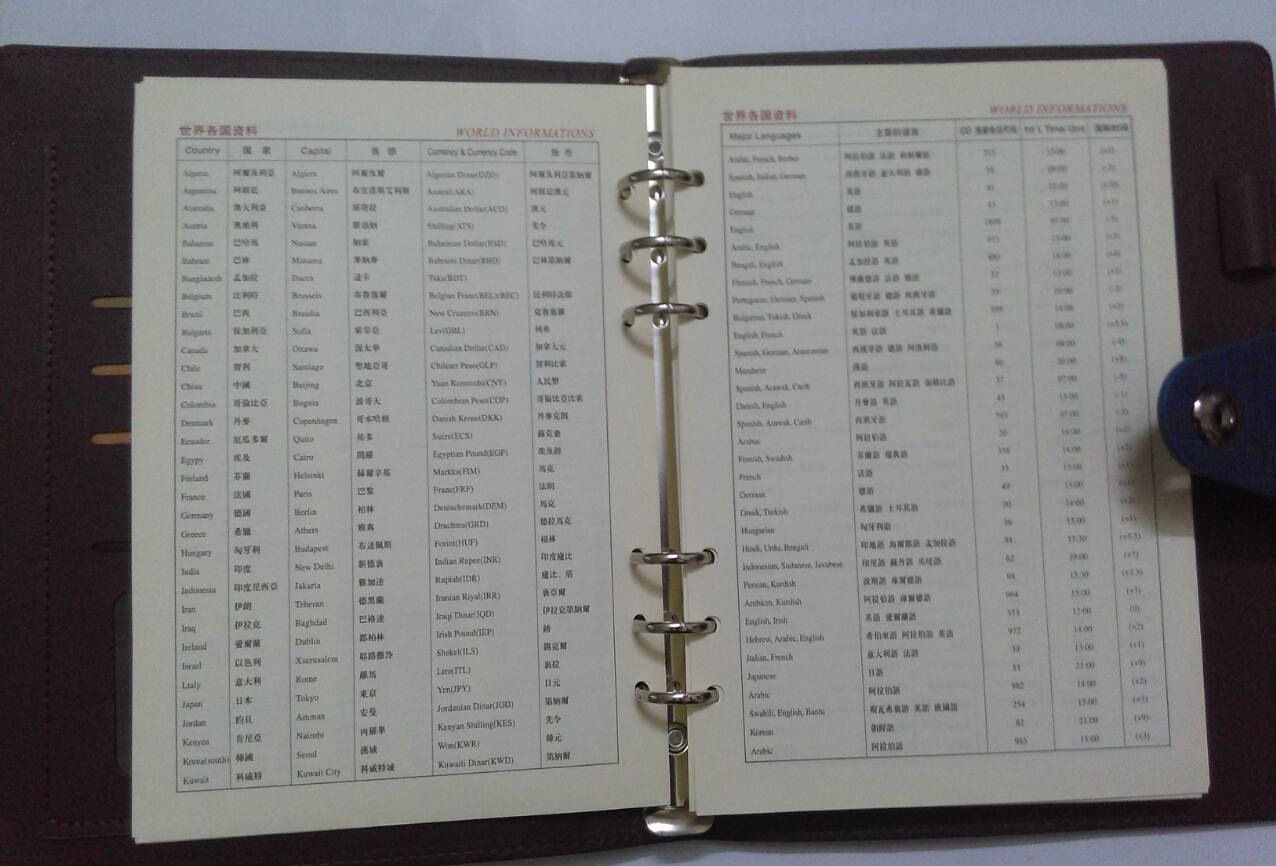 世界各国资料 WORLD INFORMATIONS
Country 國 家 Capital 首 都 Currency & Currency Code 貨 幣
Algeria 阿爾及利亞 Algiers 阿爾及爾 Algerian Dinar(DZD) 阿爾及利亞第納爾
Argentina 阿根廷 Buenos Aires 布宜諾斯艾利斯 Austral(ARA) 阿根廷澳元
Australia 澳大利亞 Canberra 堪培拉 Australian Dollar(AUD) 澳元
Austria 奧地利 Vienna 維也納 Shilling(ATS) 先令
Bahamas 巴哈馬 Nassau 納索 Bahamian Dollar(BSD) 巴哈馬元
Bahrain 巴林 Manama 麥納麥 Bahraini Dinar(BHD) 巴林第納爾
Bangladesh 孟加拉 Dacca 達卡 Taka(BDT)
Belgium 比利時 Brussels 布魯塞爾 Belgian Franc(BEL)(BEC) 比利時法郎
Brazil 巴西 Brasilia 巴西利亞 New Cruzeiro(BRN) 克魯塞羅
Bulgaria 保加利亞 Sofia 索菲亞 Lev(GBL) 列弗
Canada 加拿大 Ottawa 渥太華 Canadian Dollar(CAD) 加拿大元
Chile 智利 Santiago 聖地亞哥 Chilean Peso(GLP) 智利比索
China 中國 Beijing 北京 Yuan Renminbi(CNY) 人民幣
Colombia 哥倫比亞 Bogota 波哥大 Colombian Peso(COP) 哥倫比亞比索
Denmark 丹麥 Copenhagen 哥本哈根 Danish Krone(DKK) 丹麥克朗
Ecuador 厄瓜多爾 Quito 基多 Sucre(ECS) 蘇克雷
Egypy 埃及 Cairo 開羅 Egyptian Pound(EGP) 埃及鎊
Finland 芬蘭 Helsinki 赫爾辛基 Markka(FIM) 馬克
France 法國 Paris 巴黎 Franc(FRF) 法朗
Germany 德國 Berlin 柏林 Deutschemark(DEM) 馬克
Greece 希臘 Athers 雅典 Drachma(GRD) 德拉馬克
Hungary 匈牙利 Budapest 布達佩斯 Forint(HUF) 福林
India 印度 New Delhi 新德裏 Indian Rupee(INR) 印度盧比
Indonesia 印度尼西亞 Jakarta 雅加達 Rupiah(IDR) 盧比、盾
Iran 伊朗 Teheran 德黑蘭 Iranian Riyal(IRR) 裏亞爾
Iraq 伊拉克 Baghdad 巴格達 Iraqi Dinar(IQD) 伊拉克第納爾
Ireland 愛爾蘭 Dublin 都柏林 Irish Pound(IEP) 鎊
Israel 以色列 Xserusalem 耶路撒冷 Shekel(ILS) 錫克爾
Ltaly 意大利 Rome 羅馬 Liro(ITL) 裏拉
Japan 日本 Tokyo 東京 Yen(JPY) 日元
Jordan 約旦 Amman 安曼 Jordanian Dinar(JOD) 第納爾
Kenyea 肯尼亞 Nairobi 內羅畢 Kenyan Shilling(KES) 先令
Korea(south) 韓國 Seoul 漢城 Won(KWR) 韓元
Kuwait 科威特 Kuwait City 科威特城 Kuwaiti Dinar(KWD) 第納爾
世界各国资料 WORLD INFORMATIONS
Major Languages 主要的语言
Arabic, French, Berber 阿拉伯語 法語 柏柏爾語
Spanish, Italian, German 西班牙語 意大利語 德語
English 英語
German 德語
English 英語
Arabic, English 阿拉伯語 英語
Bengali, English 孟加拉語 英語
Flemish, French, German 法語 德語
Portuguese, German, Spanish 葡萄牙語 德語 西班牙語
Bulgarian, Tukish, Greek 保加利亞語 土耳其語 希臘語
English, French 英語 法語
Spanish, German, Araucanian 西班牙語 德語
Mandarin 漢語
Spanish, Arawak, Carib 西班牙語 阿拉瓦語 加勒比語
Danish, English 丹麥語 英語
Spanish, Arawak, Carib 西班牙語
Arabac 阿拉伯語
Finnish, Swedish 芬蘭語 瑞典語
French 法語 33
German 德語 49
Greek, Turkish 希臘語 土耳其語 14:00
Hungarian 匈牙利語 36 13:00
Hindi, Urdu, Bengali 印地語 烏爾都語 孟加拉語 91 17:30
Indonesian, Sudanese, Javabese 印尼語 蘇丹語 爪哇語 62 19:00
Persian, Kurdish 波斯語 庫爾德語 98 15:30 (+3.5)
Arabicm, Kurdish 阿拉伯語 庫爾德語 964 15:00 (+3)
English, Irish 英語 愛爾蘭語 353 12:00 (0)
Hebrew, Arabic, English 希伯來語 阿拉伯語 英語 972 14:00 (+2)
Italian, French 意大利語 法語 39 13:00 (+1)
Japanese 日語 81 21:00 (+9)
Arabic 阿拉伯語 962 14:00 (+2)
Swahili, English, Bantu 斯瓦希裏語 英語 班圖語 254 15:00 (+3)
Korean 朝鮮語 82 21:00 (+9)
Arabic 阿拉伯語 965 15:00 (+3)